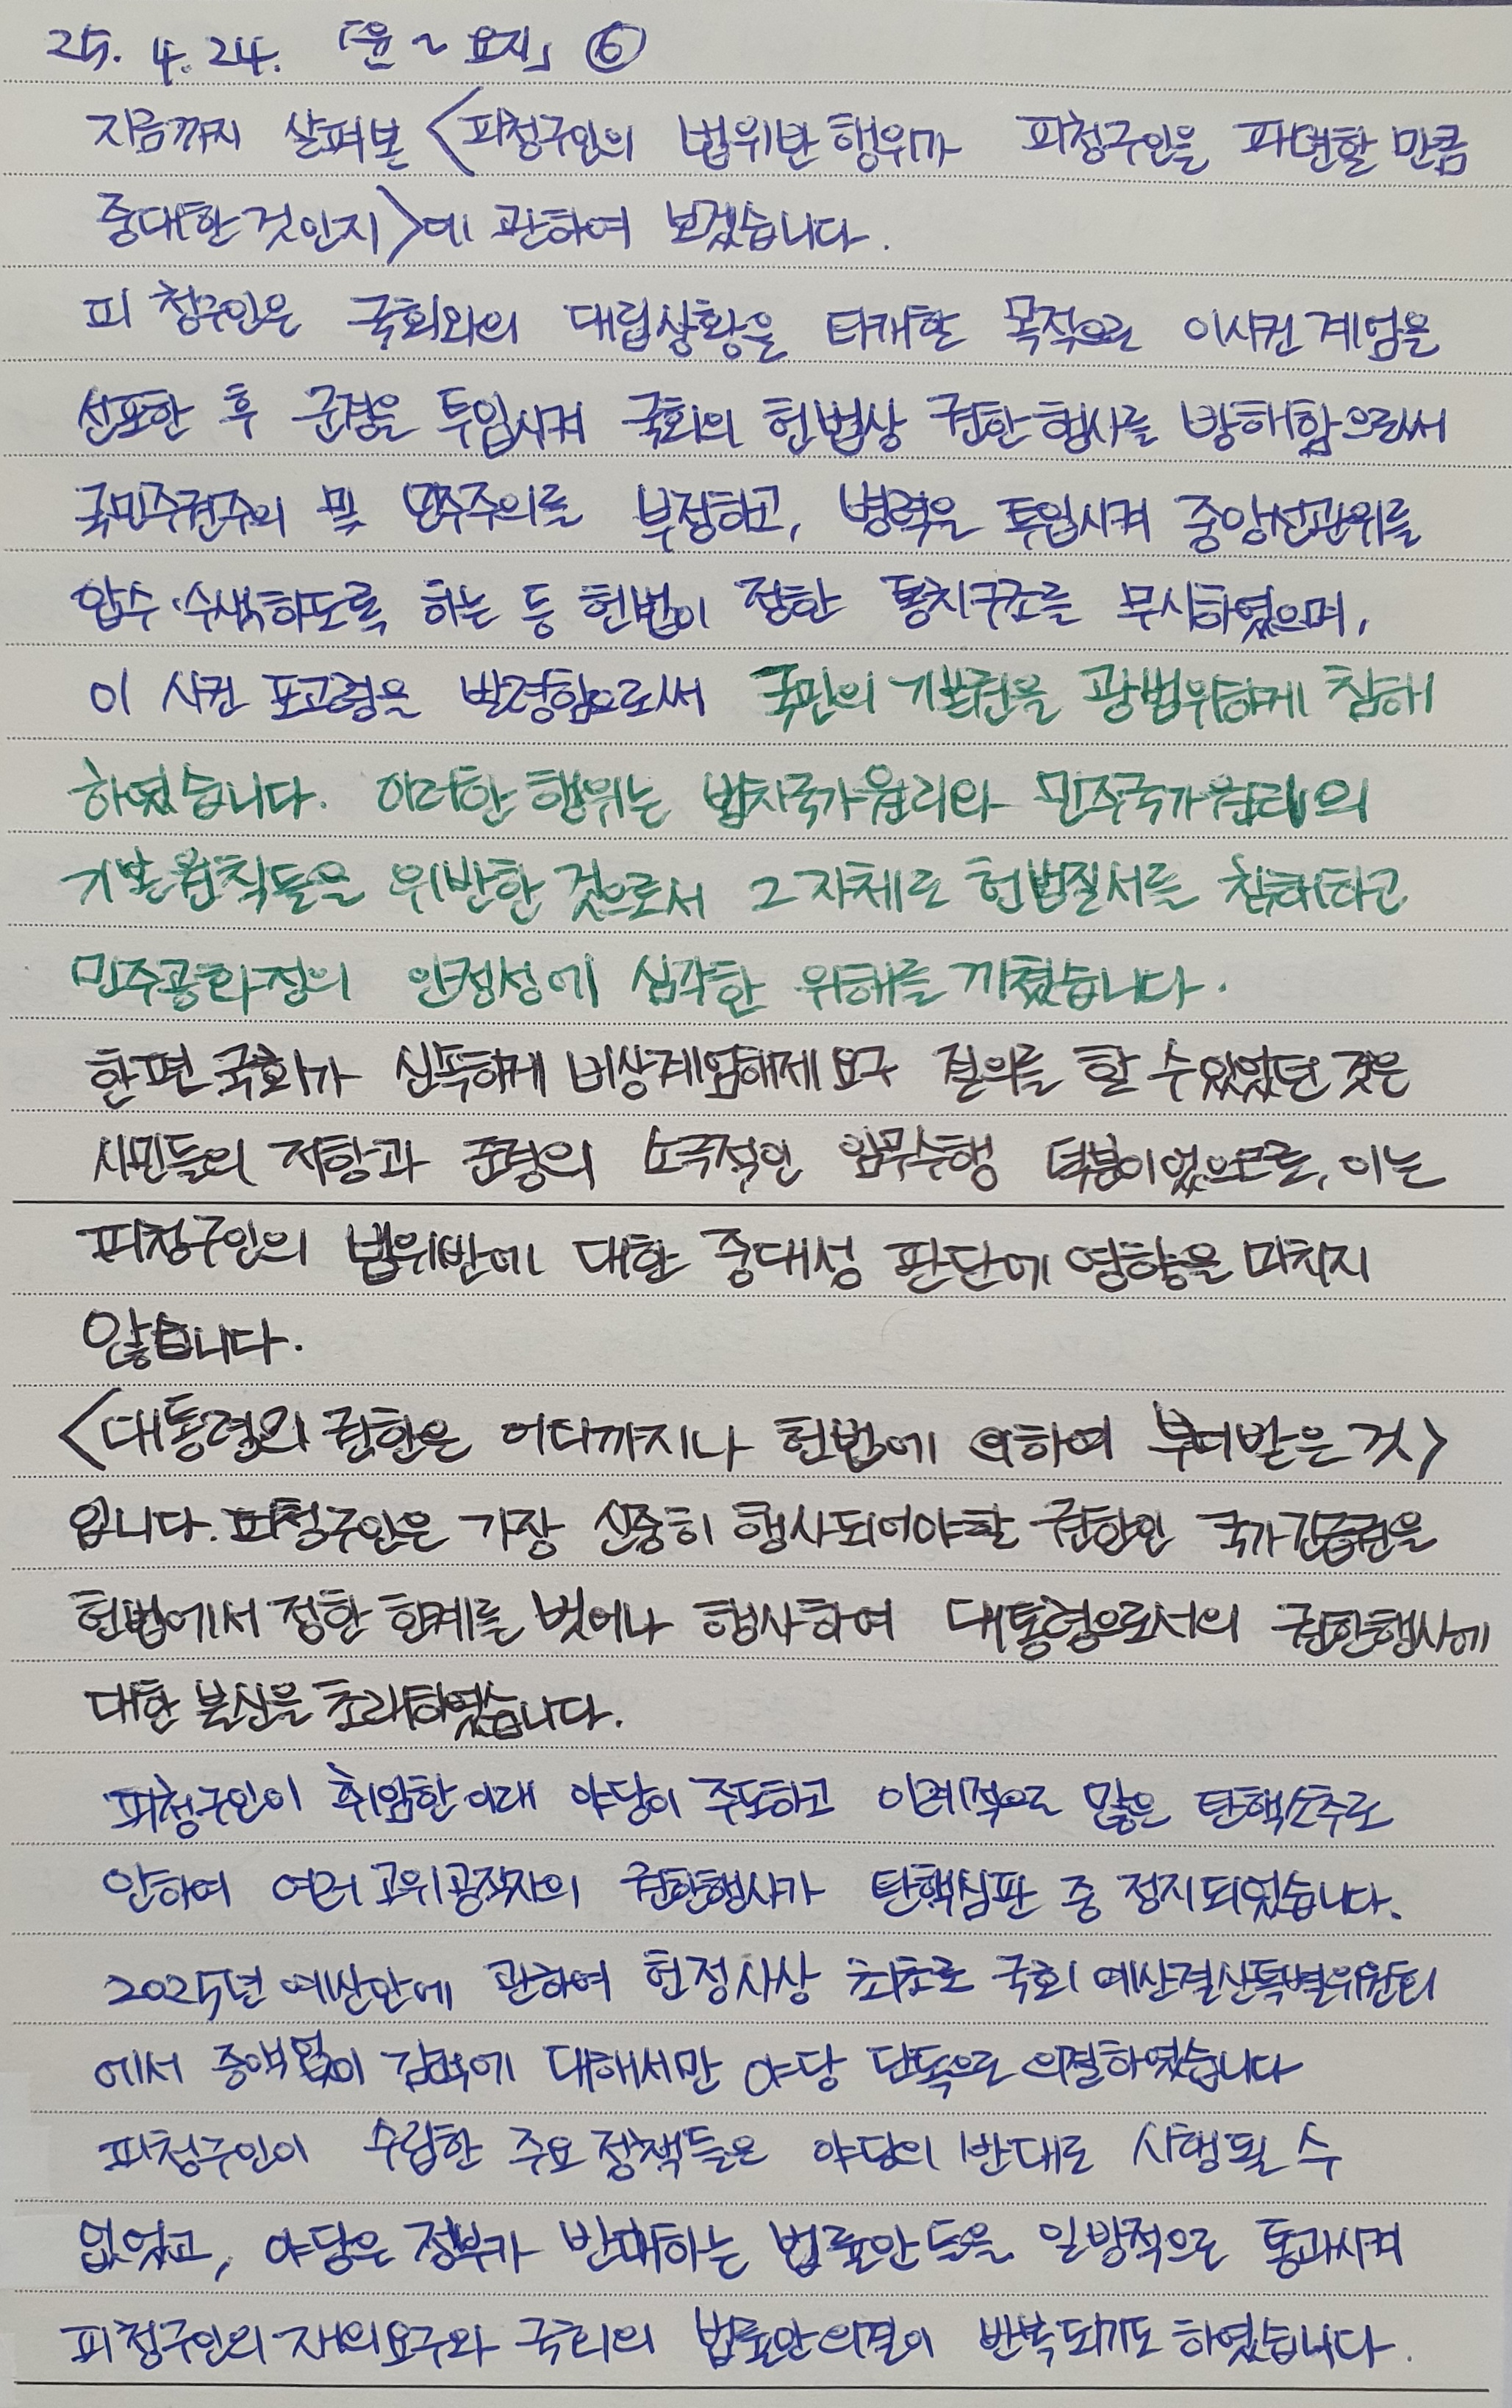 25. 4. 24. 「윤 ~ 요지」 ⑥
지금까지 살펴본 <피청구인의 법위반 행위가 피청구인을 파면할 만큼
중대한 것인지>에 관하여 보겠습니다.
피청구인은 국회와의 대립상황을 타개할 목적으로 이사건 계엄을
선포한 후 군경을 투입시켜 국회의 헌법상 권한행사를 방해함으로써
국민주권주의 및 민주주의를 부정하고, 병력을 투입시켜 중앙선관위를
압수·수색하도록 하는 등 헌법이 정한 통치구조를 무시하였으며,
이 사건 포고령을 발령함으로써 국민의 기본권을 광범위하게 침해
하였습니다. 이러한 행위는 법치국가원리와 민주국가원리의
기본원칙들을 위반한 것으로서 그 자체로 헌법질서를 침해하고
민주공화정의 안정성에 심각한 위해를 끼쳤습니다.
한편 국회가 신속하게 비상계엄해제요구 결의를 할 수 있었던 것은
시민들의 저항과 군경의 소극적인 임무수행 덕분이었으므로, 이는
피청구인의 법위반에 대한 중대성 판단에 영향을 미치지
않습니다.
<대통령의 권한은 어디까지나 헌법에 의하여 부여받은 것>
입니다. 피청구인은 가장 신중히 행사되어야할 권한인 국가긴급권을
헌법에서 정한 한계를 벗어나 행사하여 대통령으로서의 권한행사에
대한 불신을 초래하였습니다.
피청구인이 취임한 이래 야당이 주도하고 이례적으로 많은 탄핵소추로
인하여 여러 고위공직자의 권한행사가 탄핵심판 중 정지되었습니다.
2025년 예산안에 관하여 헌정사상 최초로 국회 예산결산특별위원회
에서 증액없이 감액에 대해서만 야당 단독으로 의결하였습니다
피청구인이 수립한 주요 정책들은 야당의 반대로 시행될 수
없었고, 야당은 정부가 반대하는 법률안들을 일방적으로 통과시켜
피청구인의 재의요구와 국회의 법률안의결이 반복되기도 하였습니다.